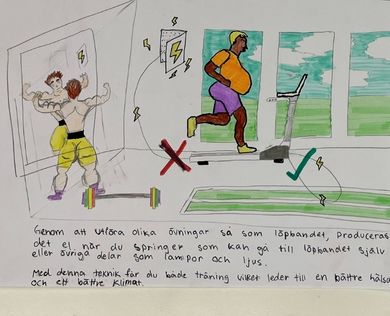 Genom att utföra olika övningar så som löpbandet, produceras
det el när du springer som kan gå till löpbandet själv
eller övriga delar som lampor och ljus.
Med denna teknik får du både träning vilket leder till en bättre hälsa
och ett bättre klimat.